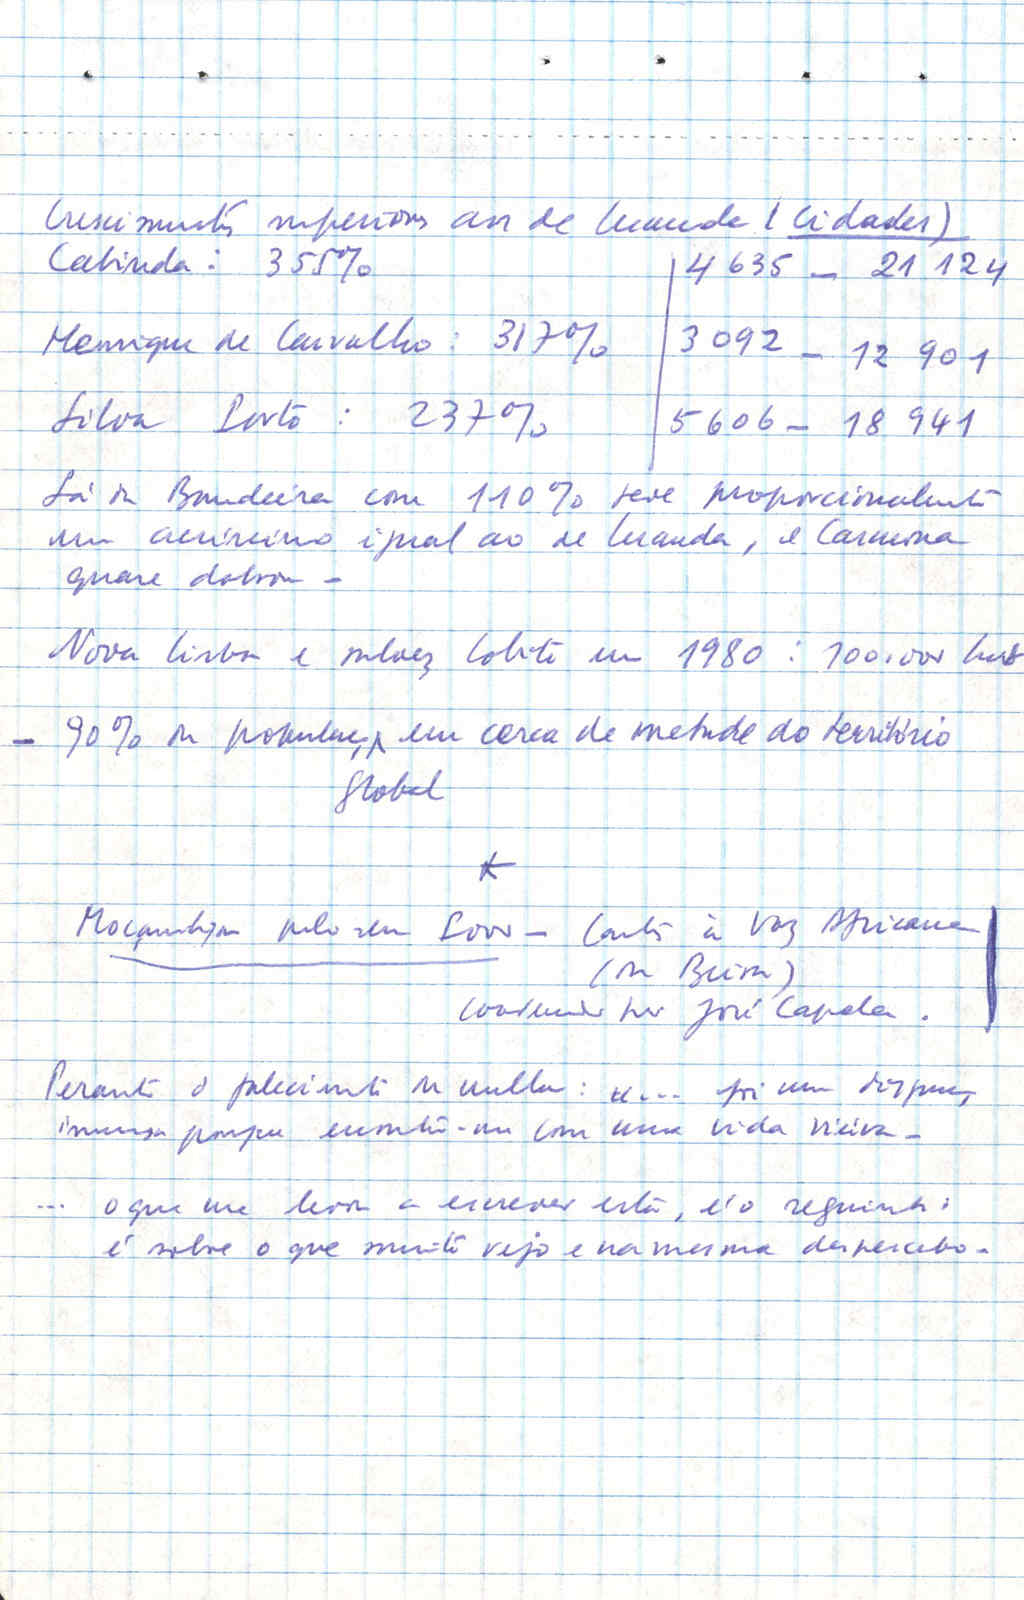 Crescimentos superiores aos de Luanda (Cidades)
Cabinda: 355% | 4 635 – 21 124
Henrique de Carvalho: 317% | 3 092 – 12 901
Silva Porto: 237% | 5 606 – 18 941
Sá da Bandeira com 110% teve proporcionalmente
um acréscimo igual ao de Luanda, e Carmona
quase dobrou –
Nova Lisboa e talvez Lobito em 1980: 100.000 hab
– 90% da população em cerca de metade do território
global
*
Moçambique pelo seu Povo – Cartas à Voz Africana
(da Beira)
por José Capela.
Perante o falecimento da mulher: «... foi um desgosto
imenso porque encontro-me com uma vida viúva –
... o que me levou a escrever esta, é o seguinte:
é sobre o que muito vejo e na mesma despercebo –